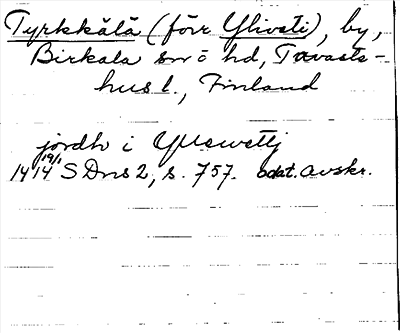 Tyrkkälä (förr Ylivesti), by,
Birkala sn o hd, Tavaste-
hus l., Finland
jordh i Yllewettj
19/1
1414 SDns 2, s. 757. odat. avskr.